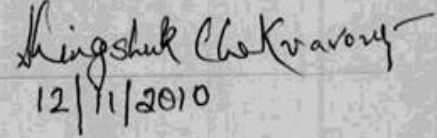 Kingshuk Chakravorty
12/11/2010